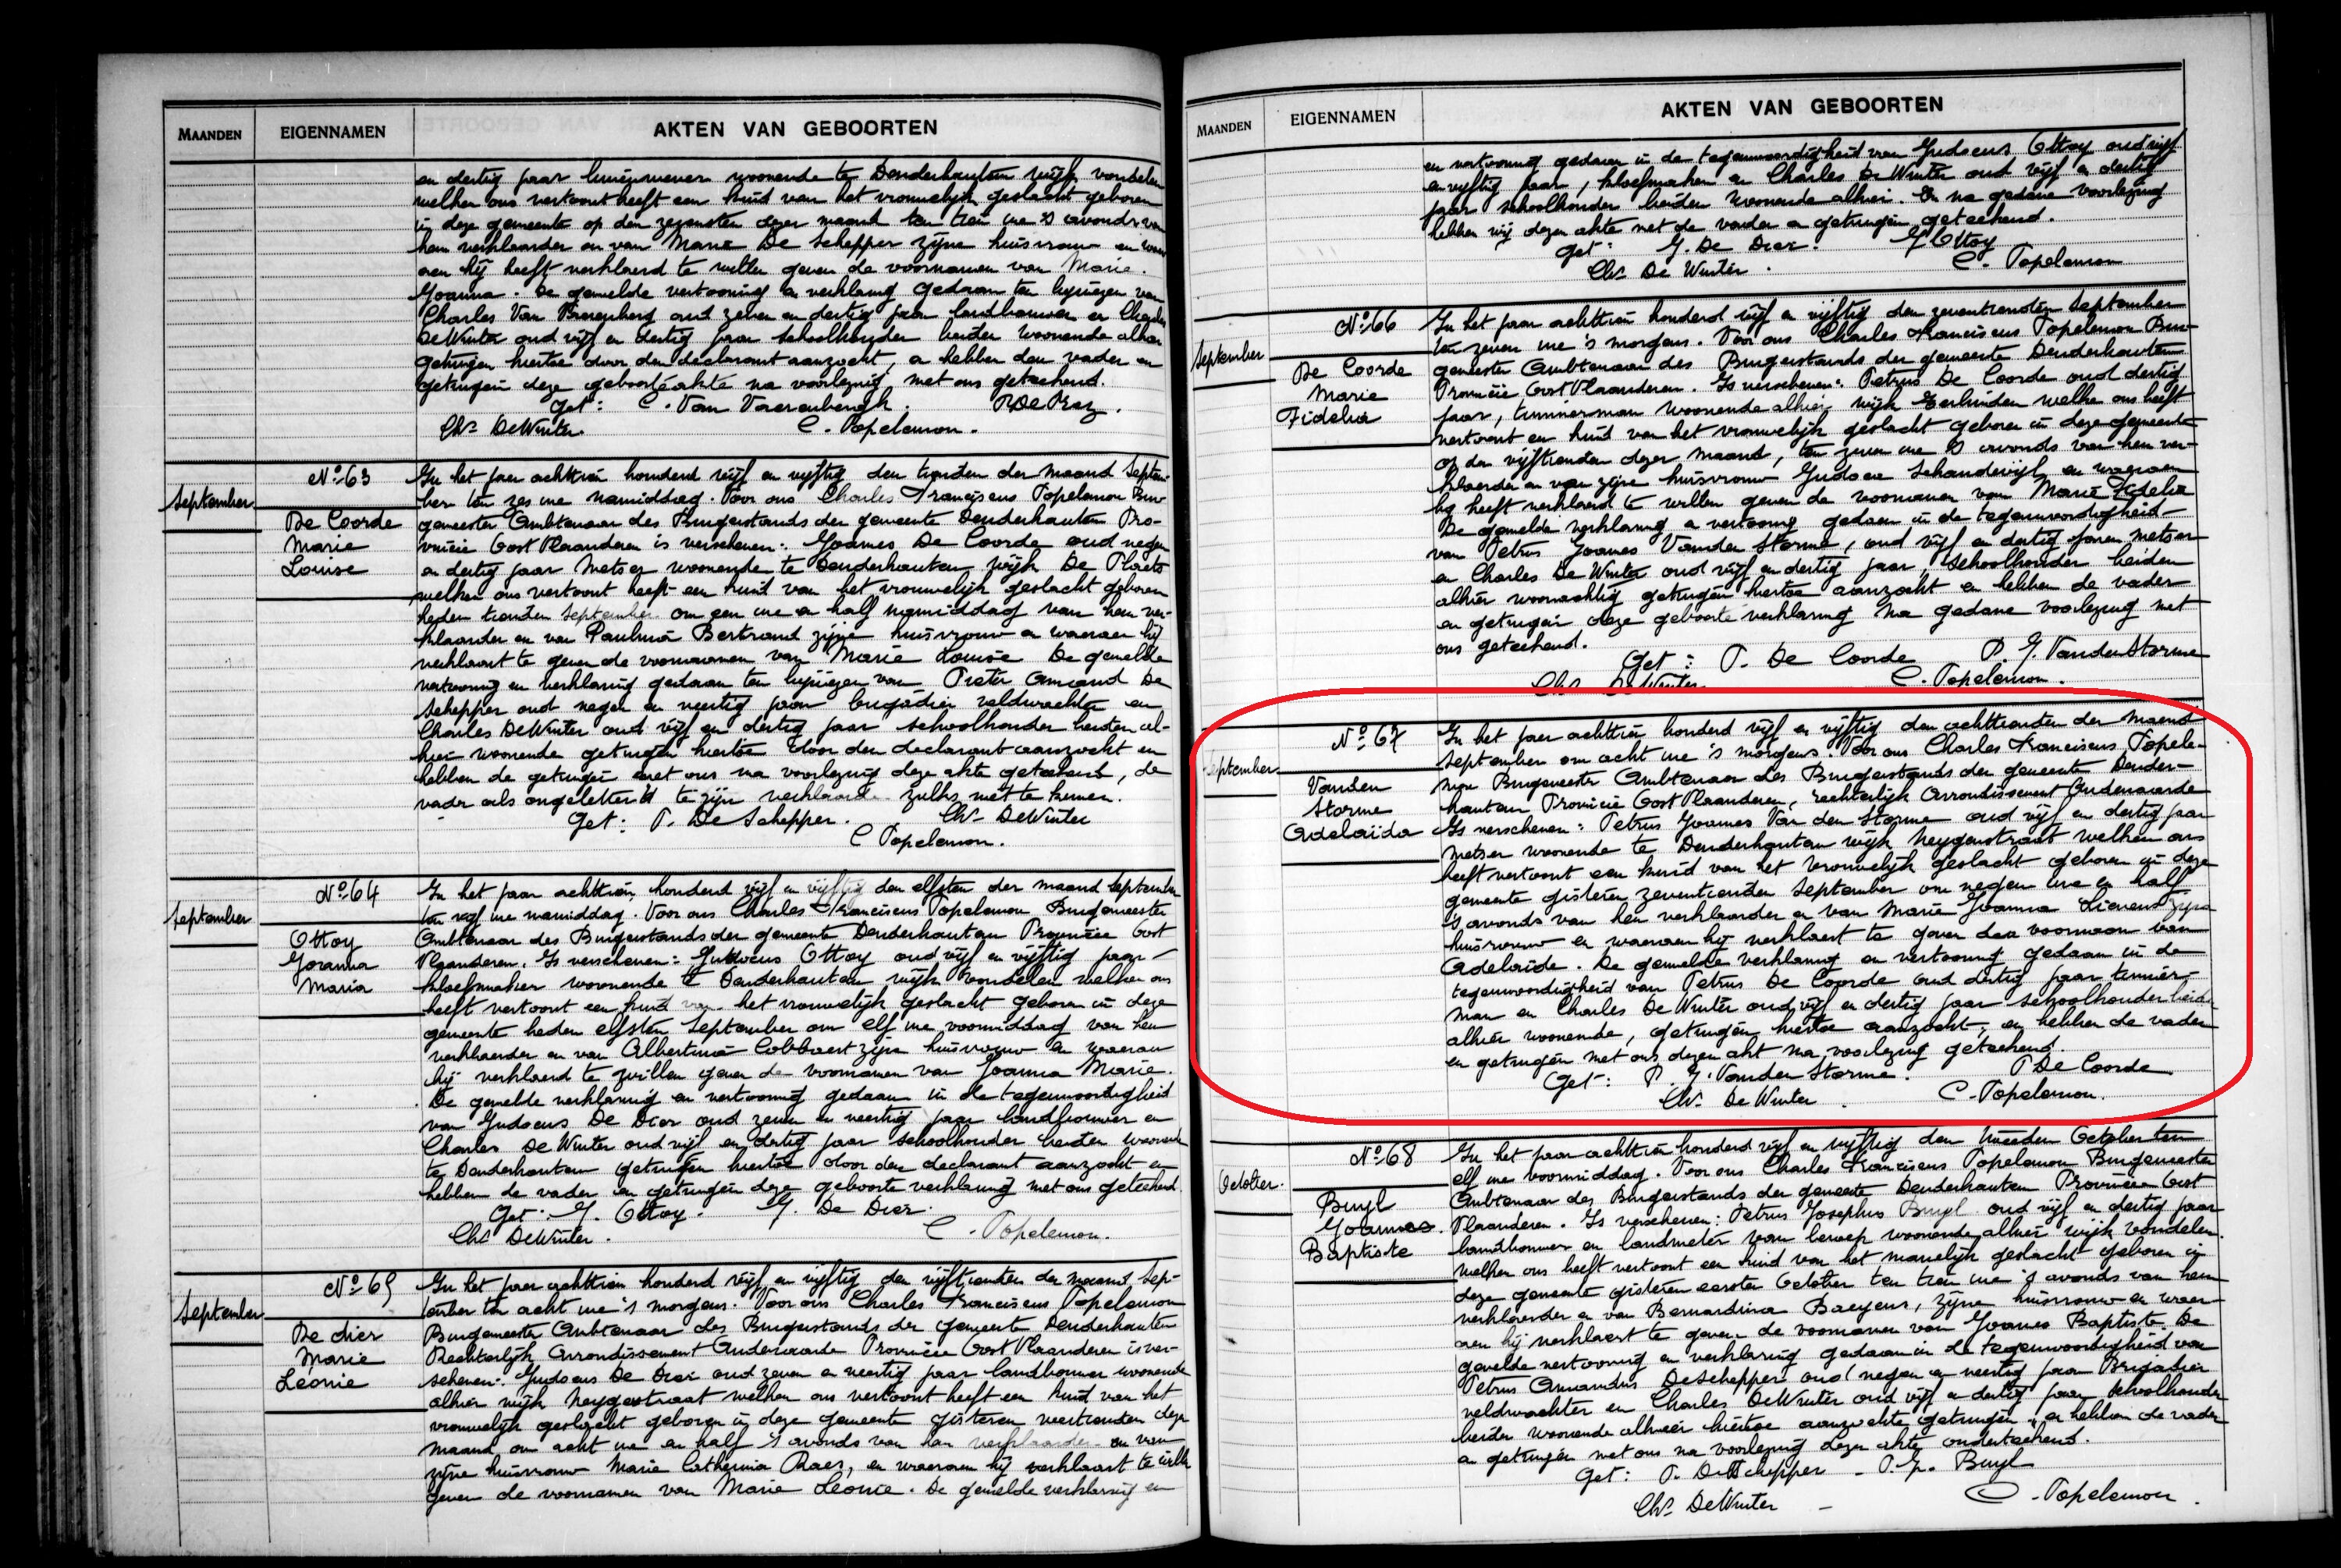 MAANDEN
EIGENNAMEN
AKTEN VAN GEBOORTEN
en dertig jaar woonende te Denderhautem wijk
welken ons vertoont heeft een kind van het vrouwelijk geslacht geboren
in deze gemeente op den dezer maand ten tien ure 's avonds van
hem verklaarder en van Marie De Schepper zijne huisvrouw en waer
aen hij heeft verklaerd te willen geven de voornamen van Marie
Joanna. De gemelde vertooning en verklaring gedaan ten bijwezen van
Charles Van Vaerenberg oud zeven en dertig jaar landbouwer en Charles
DeWinter oud vijf en dertig jaar schoolhouder beiden woonende alhier
getuigen hiertoe door den declarant aanzocht, en hebben den vader en
getuigen deze geboorteakte na voorlezing met ons geteekend.
Get: C. Van Vaerenbergh.
Chs DeWinter. C. Popelemon.
September
No 63
De Coorde
Marie
Louise
In het jaer achttien honderd vijf en vijftig den tienden der maand Septem-
ber ten zes ure namiddag. Voor ons Charles Franciscus Popelemon Bur-
gemeester Ambtenaar des Burgerstands der gemeente Denderhautem Pro-
vincie Oost Vlaanderen is verschenen: Joannes De Coorde oud negen
en dertig jaar Metser woonende te Denderhautem wijk De Plaets
welken ons vertoont heeft een kind van het vrouwelijk geslacht geboren
heden tienden September om een ure en half namiddag van hem ver-
klaarder en van Paulina Bertrand zijne huisvrouw en waeraen hij
verklaart te geven de voornamen van Marie Louise De gemelde
vertooning en verklaring gedaan ten bijwezen van Pieter Amand De
Schepper oud negen en veertig jaar brigadier veldwachter en
Charles DeWinter oud vijf en dertig jaar schoolhouder beiden al-
hier woonende getuigen hiertoe door den declarant aanzocht en
hebben de getuigen met ons na voorlezing deze akte geteekend, de
vader als ongeletterd te zijn verklaard zulks niet te kunnen.
Get: P. De Schepper. Chs DeWinter
C Popelemon.
September
No 64
Ottoy
Joanna
Maria
In het jaar achttien honderd vijf en vijftig den elfsten der maand September
ten vijf ure namiddag. Voor ons Charles Franciscus Popelemon Burgemeester
Ambtenaar des Burgerstands der gemeente Denderhautem Provincie Oost
Vlaanderen. Is verschenen: Judocus Ottoy oud vijf en vijftig jaar
kloefmaker woonende te Denderhautem wijk Vondelen welken ons
heeft vertoont een kind van het vrouwelijk geslacht geboren in deze
gemeente heden elfsten September om elf ure voormiddag van hem
verklaerder en van Albertina Cobbaert zijne huisvrouw en waeraen
hij verklaerd te willen geven de voornamen van Joanna Marie.
De gemelde verklaring en vertooning gedaan in de tegenwoordigheid
van Judocus De Dier oud zeven en veertig jaar landbouwer en
Charles De Winter oud vijf en dertig jaar schoolhouder beiden woonende
te Denderhautem getuigen hiertoe door den declarant aanzocht en
hebben de vader en getuigen deze geboorte verklaring met ons geteekend
Get: J. Ottoy. J. De Dier.
Chs DeWinter. C. Popelemon.
September
No 65
De dier
Marie
Leonie
In het jaer achttien honderd vijf en vijftig den vijftienden der maand Sep-
tember ten acht ure 's morgens. Voor ons Charles Franciscus Popelemon
Burgemeester Ambtenaar des Burgerstands der gemeente Denderhautem
Rechterlijk Arrondissement Audenaarde Provincie Oost Vlaanderen is ver-
schenen: Judocus De Dier oud zeven en veertig jaar landbouwer woonende
alhier wijk Neygerstraat welken ons vertoont heeft een kind van het
vrouwelijk geslacht geboren in deze gemeente gisteren veertienden dezer
maand om acht ure en half 's avonds van hem verklaarder en van
zijne huisvrouw Marie Catherina Raes, en waeraen hij verklaart te willen
geven de voornamen van Marie Leonie. De gemelde verklaring en
MAANDEN
EIGENNAMEN
AKTEN VAN GEBOORTEN
en vertooning gedaen in de tegenwoordigheid van Judocus Ottoy oud vijf
en vijftig jaar, kloefmaker en Charles De Winter oud vijf en dertig
jaar schoolhouder beiden woonende alhier. En na gedane voorlezing
hebben wij dezen akte met de vader en getuigen geteekend.
Get: J. De Dier. J. Ottoy
Chs De Winter. C. Popelemon
September
No 66
De Coorde
Marie
Fidelia
In het jaar achttien honderd vijf en vijftig den zeventienden September
ten zeven ure 's morgens. Voor ons Charles Franciscus Popelemon Bur-
gemeester Ambtenaar des Burgerstands der gemeente Denderhautem
Provincie Oost Vlaanderen. Is verschenen: Petrus De Coorde oud dertig
jaar, timmerman woonende alhier wijk welke ons heeft
vertoont een kind van het vrouwelijk geslacht geboren in deze gemeente
op den vijftienden dezer maand, ten zeven ure 's avonds van hem ver-
klaerder en van zijne huisvrouw Judoca Schandevijl en waeraen
hij heeft verklaerd te willen geven de voornamen van Marie Fidelia
De gemelde verklaring en vertooning gedaen in de tegenwoordigheid
van Petrus Joannes Vanden Storme, oud vijf en dertig jaren metser
en Charles De Winter oud vijf en dertig jaar, schoolhouder beiden
alhier woonachtig getuigen hiertoe aanzocht en hebben de vader
en getuigen deze geboorte verklaring na gedane voorlezing met
ons geteekend.
Get: P. De Coorde P. J. Vanden Storme
Chs DeWinter. C. Popelemon.
September
No 67
Vanden
Storme
Adelaïda
In het jaer achttien honderd vijf en vijftig den achttienden der maend
September om acht ure 's morgens. Voor ons Charles Franciscus Popele-
mon Burgemeester Ambtenaar des Burgerstands der gemeente Dender-
hautem Provincie Oost Vlaanderen, rechterlijk Arrondissement Audenaarde
Is verschenen: Petrus Joannes Van den Storme oud vijf en dertig jaar
metser woonende te Denderhautem wijk Neygerstraat welken ons
heeft vertoont een kind van het vrouwelijk geslacht geboren in deze
gemeente gisteren zeventienden September om negen ure en half
's avonds van hem verklaarder en van Marie Joanna Lievens zijne
huisvrouw en waeraen hij verklaert te geven den voornaam van
Adelaïde. De gemelde verklaring en vertooning gedaan in de
tegenwoordigheid van Petrus De Coorde oud dertig jaar timmer-
man en Charles De Winter oud vijf en dertig jaar schoolhouder beide
alhier woonende, getuigen hiertoe aanzocht, en hebben de vader
en getuigen met ons dezen akt na voorlezing geteekend.
Get: P. J. Vanden Storme. P De Coorde
Chs De Winter. C. Popelemon.
October.
No 68
Buyl
Joannes
Baptiste
In het jaar achttien honderd vijf en vijftig den tweeden October ten
elf ure voormiddag. Voor ons Charles Franciscus Popelemon Burgemeester
Ambtenaar des Burgerstands der gemeente Denderhautem Provincie Oost
Vlaanderen. Is verschenen: Petrus Josephus Buyl oud vijf en dertig jaar
landbouwer en landmeter van beroep woonende alhier wijk Vondelen
welken ons heeft vertoont een kind van het manelijk geslacht geboren in
deze gemeente gisteren eersten October ten tien ure 's avonds van hem
verklaerder en van Bernardina Baeyens, zijne huisvrouw en waer-
aen hij verklaert te geven de voornamen van Joannes Baptiste. De
gemelde vertooning en verklaring gedaan in de tegenwoordigheid van
Petrus Amandus DeSchepper oud negen en veertig jaar Brigadier
veldwachter en Charles DeWinter oud vijf en dertig jaar schoolhouder
beiden woonende alhier hiertoe aanzochte getuigen, en hebben de vader
en getuigen met ons na voorlezing dezer akte onderteekend.
Get: P. DeSchepper - P. J. Buyl
Chs DeWinter - C. Popelemon.